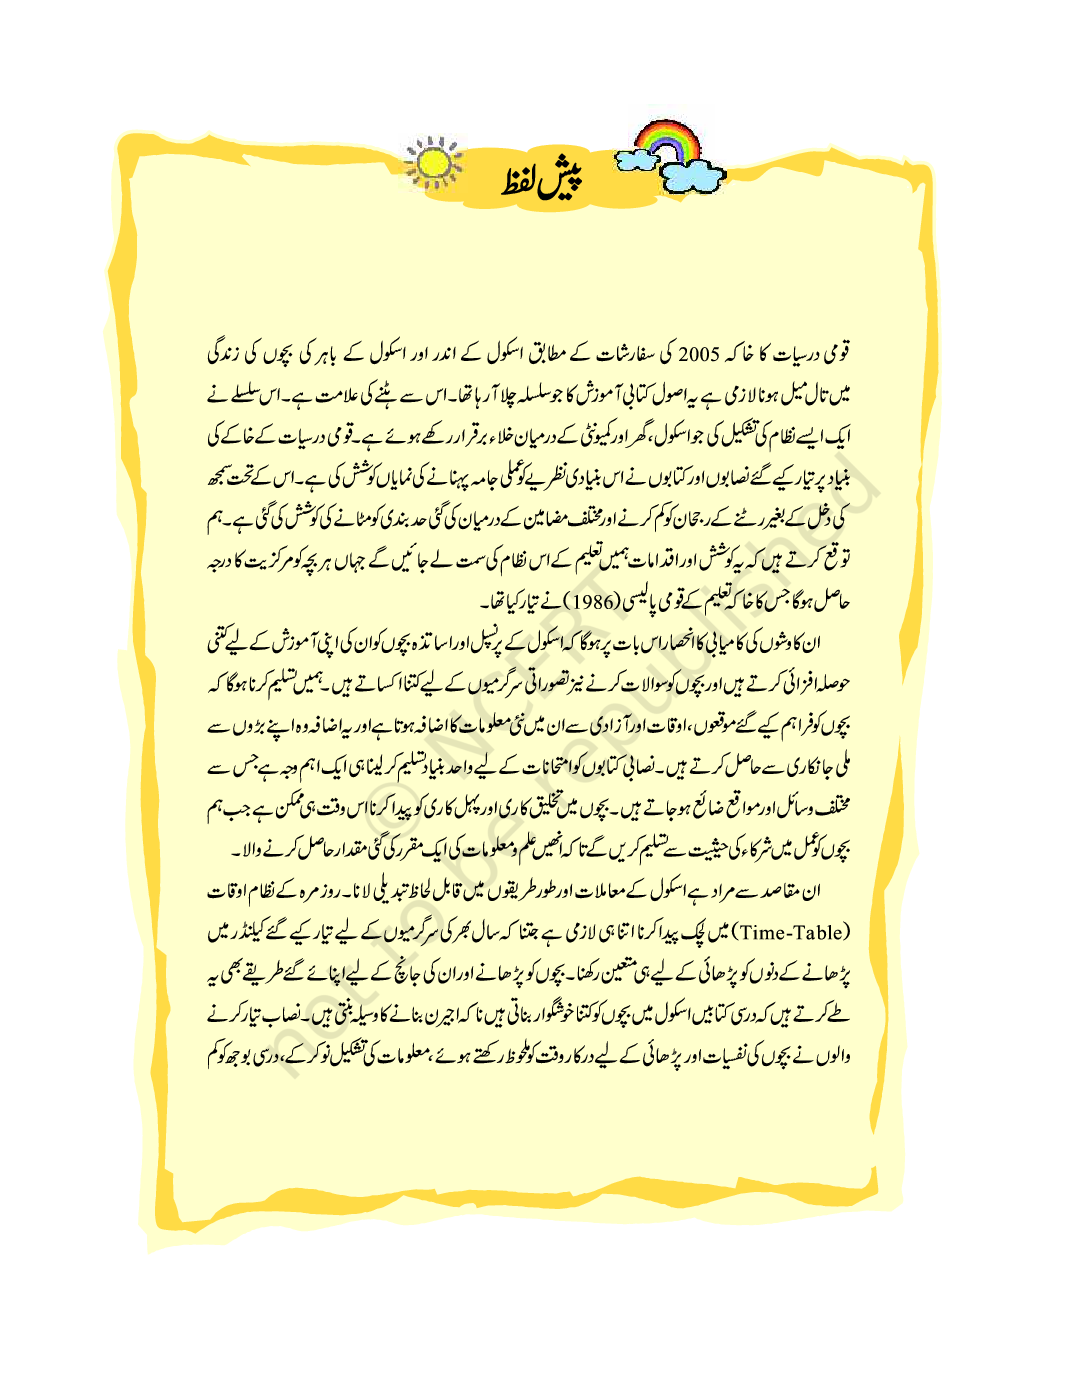 پیش لفظ
قومی درسیات کا خاکہ 2005 کی سفارشات کے مطابق اسکول کے اندر اور اسکول کے باہر کی بچوں کی زندگی
میں تال میل ہونا لازمی ہے یہ اصول کتابی آموزش کا جو سلسلہ چلا آ رہا تھا۔ اس سے ہٹنے کی علامت ہے۔ اس سلسلے نے
ایک ایسے نظام کی تشکیل کی جو اسکول، گھر اور کمیونٹی کے درمیان خلاء برقرار رکھے ہوئے ہے۔ قومی درسیات کے خاکے کی
بنیاد پر تیار کیے گئے نصابوں اور کتابوں نے اس بنیادی نظریے کو عملی جامہ پہنانے کی نمایاں کوشش کی ہے۔ اس کے تحت سمجھ
کی دخل کے بغیر رٹنے کے رجحان کو کم کرنے اور مختلف مضامین کے درمیان کی گئی حد بندی کو مٹانے کی کوشش کی گئی ہے۔ ہم
توقع کرتے ہیں کہ یہ کوشش اور اقدامات ہمیں تعلیم کے اس نظام کی سمت لے جائیں گے جہاں ہر بچہ کو مرکزیت کا درجہ
حاصل ہوگا جس کا خاکہ تعلیم کے قومی پالیسی (1986) نے تیار کیا تھا۔
ان کاوشوں کی کامیابی کا انحصار اس بات پر ہوگا کہ اسکول کے پرنسپل اور اساتذہ بچوں کو ان کی اپنی آموزش کے لیے کتنی
حوصلہ افزائی کرتے ہیں اور بچوں کو سوالات کرنے نیز تصوراتی سرگرمیوں کے لیے کتنا اکساتے ہیں۔ ہمیں تسلیم کرنا ہوگا کہ
بچوں کو فراہم کیے گئے موقعوں، اوقات اور آزادی سے ان میں نئی معلومات کا اضافہ ہوتا ہے اور یہ اضافہ وہ اپنے بڑوں سے
ملی جانکاری سے حاصل کرتے ہیں۔ نصابی کتابوں کو امتحانات کے لیے واحد بنیاد تسلیم کر لینا ہی ایک اہم وجہ ہے جس سے
مختلف وسائل اور مواقع ضائع ہو جاتے ہیں۔ بچوں میں تخلیق کاری اور پہل کاری کو پیدا کرنا اس وقت ہی ممکن ہے جب ہم
بچوں کو عمل میں شرکاء کی حیثیت سے تسلیم کریں گے تاکہ انھیں علم و معلومات کی ایک مقرر کی گئی مقدار حاصل کرنے والا۔
ان مقاصد سے مراد ہے اسکول کے معاملات اور طور طریقوں میں قابل لحاظ تبدیلی لانا۔ روز مرہ کے نظام اوقات
(Time-Table) میں لچک پیدا کرنا اتنا ہی لازمی ہے جتنا کہ سال بھر کی سرگرمیوں کے لیے تیار کیے گئے کیلنڈر میں
پڑھانے کے دنوں کو پڑھائی کے لیے ہی متعین رکھنا۔ بچوں کو پڑھانے اور ان کی جانچ کے لیے اپنائے گئے طریقے بھی یہ
طے کرتے ہیں کہ درسی کتابیں اسکول میں بچوں کو کتنا خوشگوار بناتی ہیں ناکہ اجیرن بنانے کا وسیلہ بنتی ہیں۔ نصاب تیار کرنے
والوں نے بچوں کی نفسیات اور پڑھائی کے لیے درکار وقت کو ملحوظ رکھتے ہوئے، معلومات کی تشکیل نو کر کے، درسی بوجھ کو کم
© NCERT
not to be republished